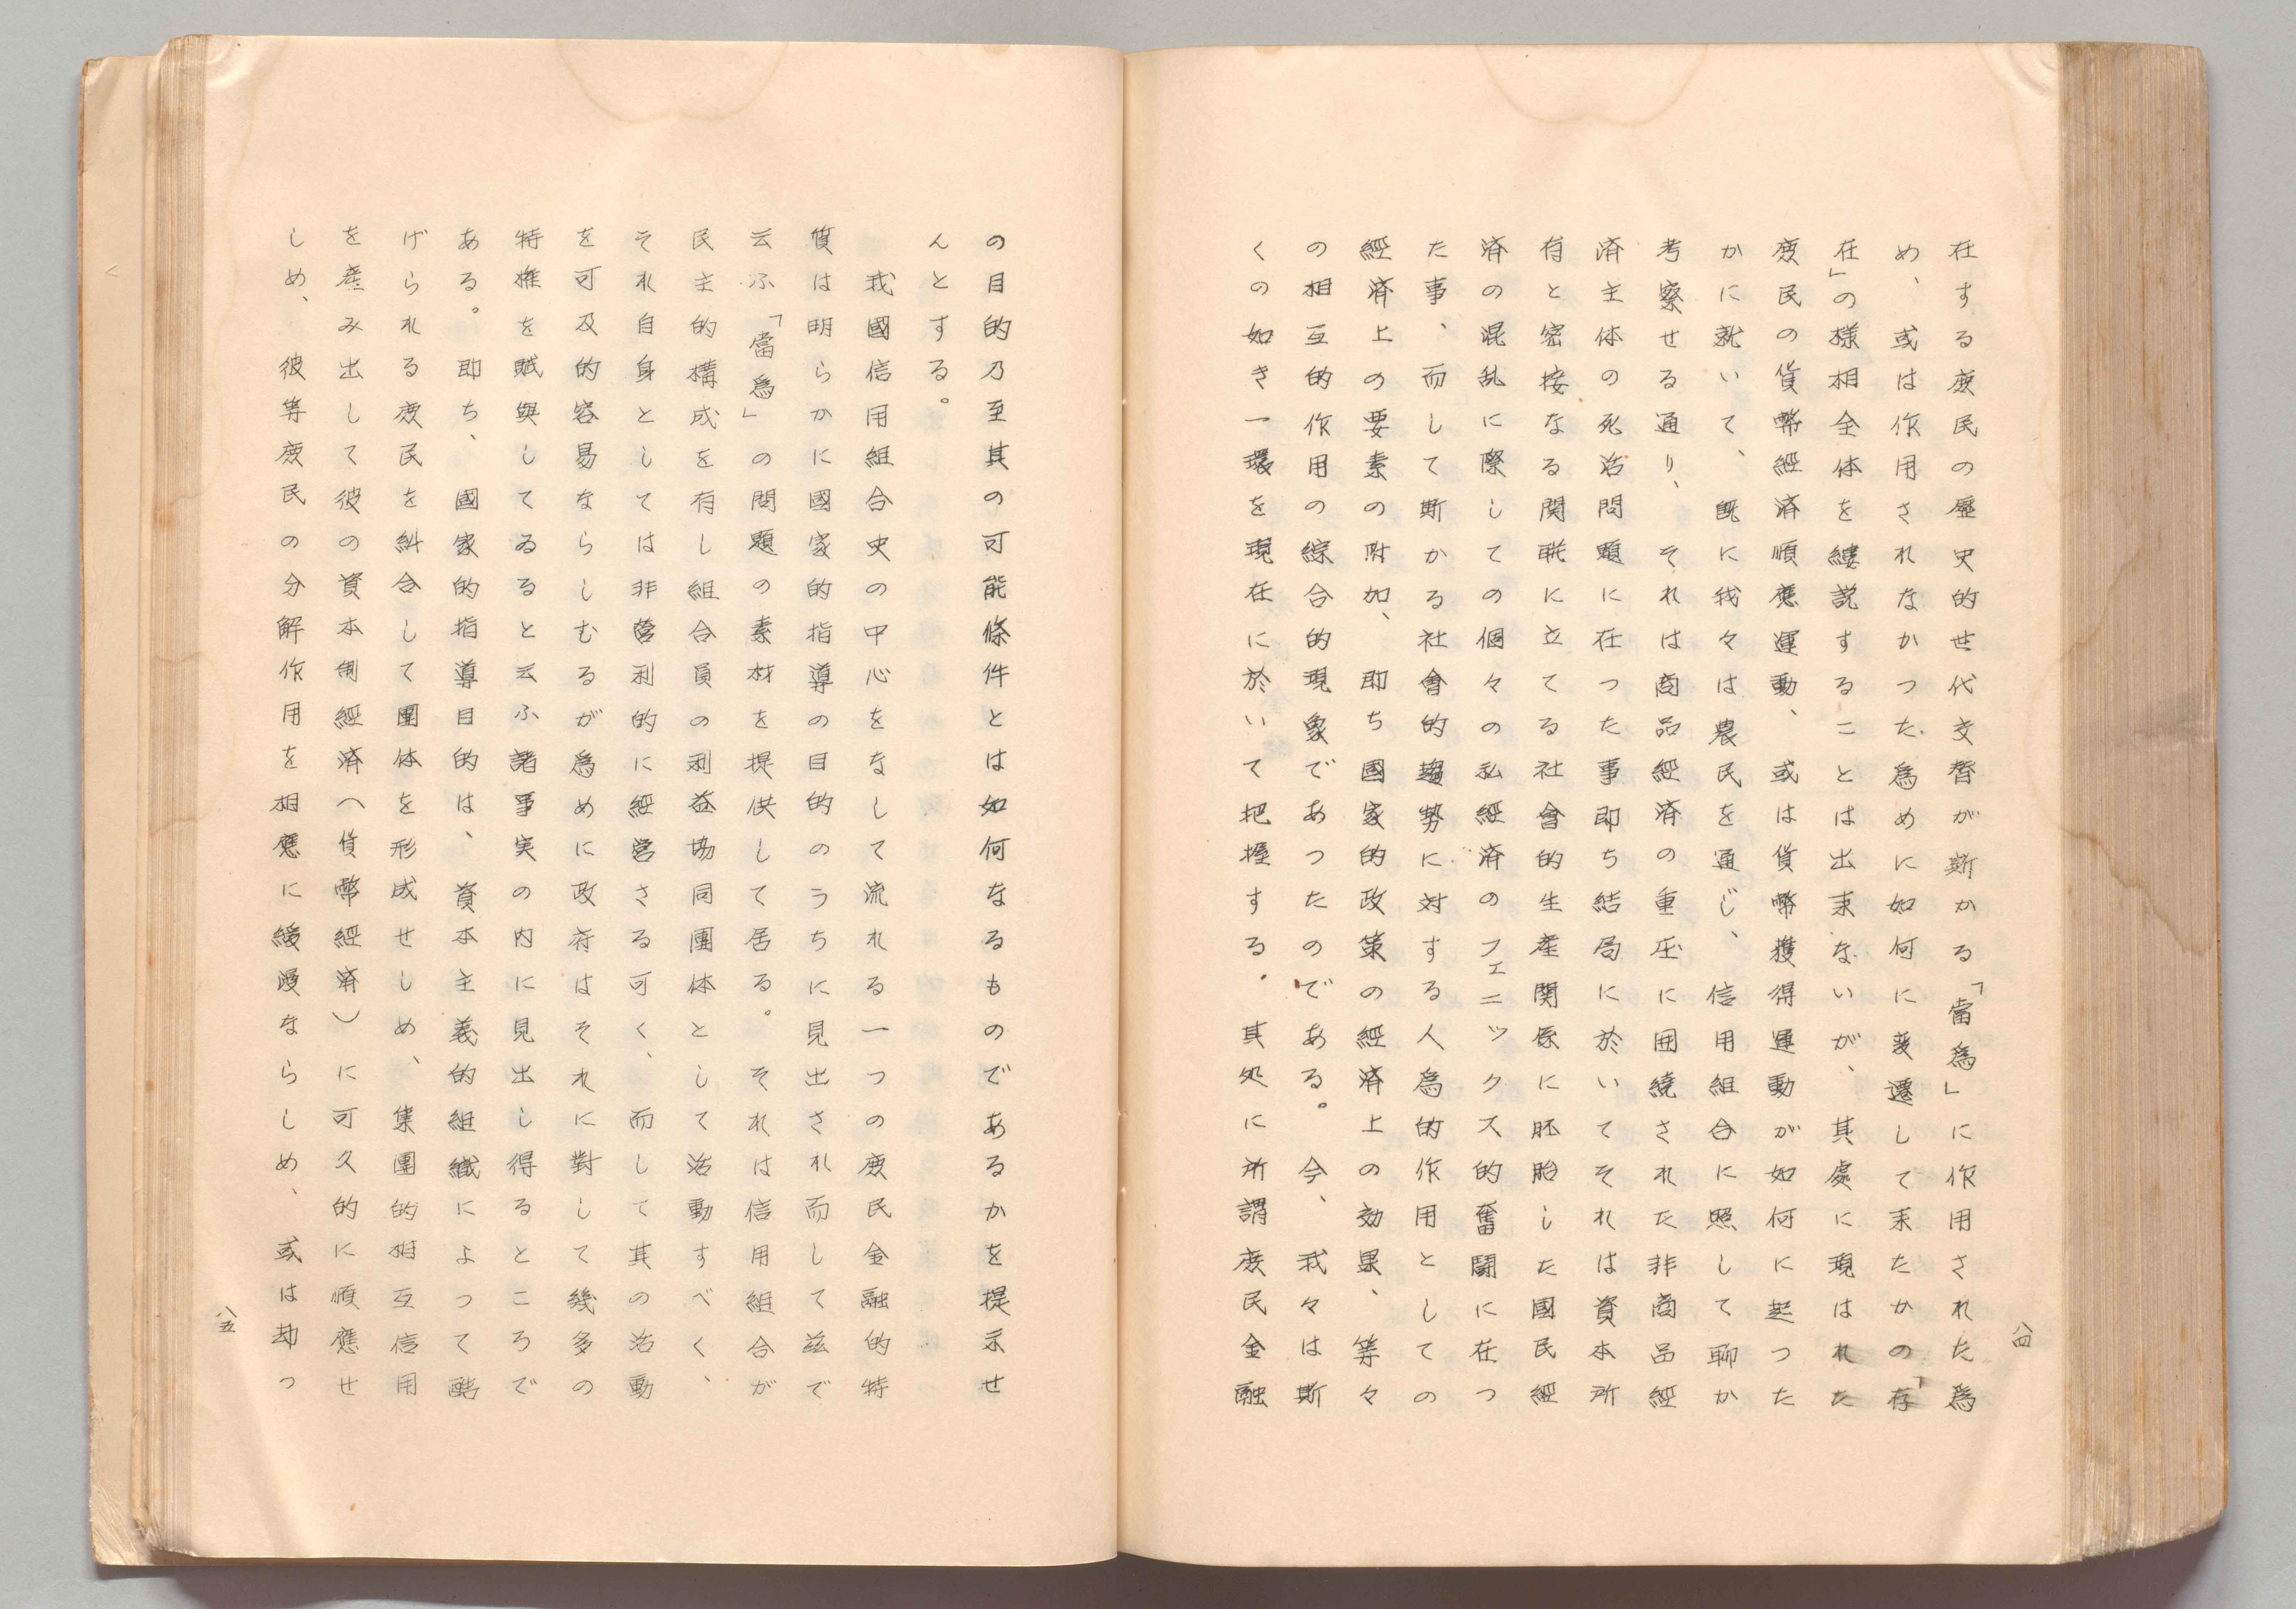 八四
在する庶民の歴史的せ代交替が斯かる「當為」に作用された為
め、或は作用されなかつた為めに如何に変遷して来たかの「存
在」の様相全体を縷説することは出来ないが、其處に現はれた
庶民の貨幣經済順應運動、或は貨幣獲得運動が如何に起つた
かに就いて、既に我々は農民を通じ、信用組合に照して聊か
考察せる通り、それは商品經済の重圧に囲繞された非商品經
済主体の死活問題に在つた事即ち結局に於いてそれは資本所
有と密接なる関聯に立てる社會的生産関係に胚胎した國民經
済の混乱に際しての個々の私經済のフェニックス的奮闘に在つ
た事、而して斯かる社會的趨勢に対する人為的作用としての
經済上の要素の附加、即ち國家的政策の經済上の効果、等々
の相互的作用の綜合的現象であつたのである。今、我々は斯
くの如き一環を現在に於いて把握する。其処に所謂庶民金融
の目的乃至其の可能條件とは如何なるものであるかを提示せ
んとする。
我國信用組合史の中心をなして流れる一つの庶民金融的特
質は明らかに國家的指導の目的のうちに見出され而して茲で
云ふ「當為」の問題の素材を提供して居る。それは信用組合が
民主的構成を有し組合員の利益協同團体として活動すべく、
それ自身としては非営利的に經営さる可く、而して其の活動
を可及的容易ならしむるが為めに政府はそれに對して幾多の
特権を賦與してゐると云ふ諸事実の内に見出し得るところで
ある。即ち、國家的指導目的は、資本主義的組織によつて酷
げられる庶民を糾合して團体を形成せしめ、集團的相互信用
を産み出して彼の資本制經済（貨幣經済）に可久的に順應せ
しめ、彼等庶民の分解作用を相應に緩漫ならしめ、或は却つ
八五